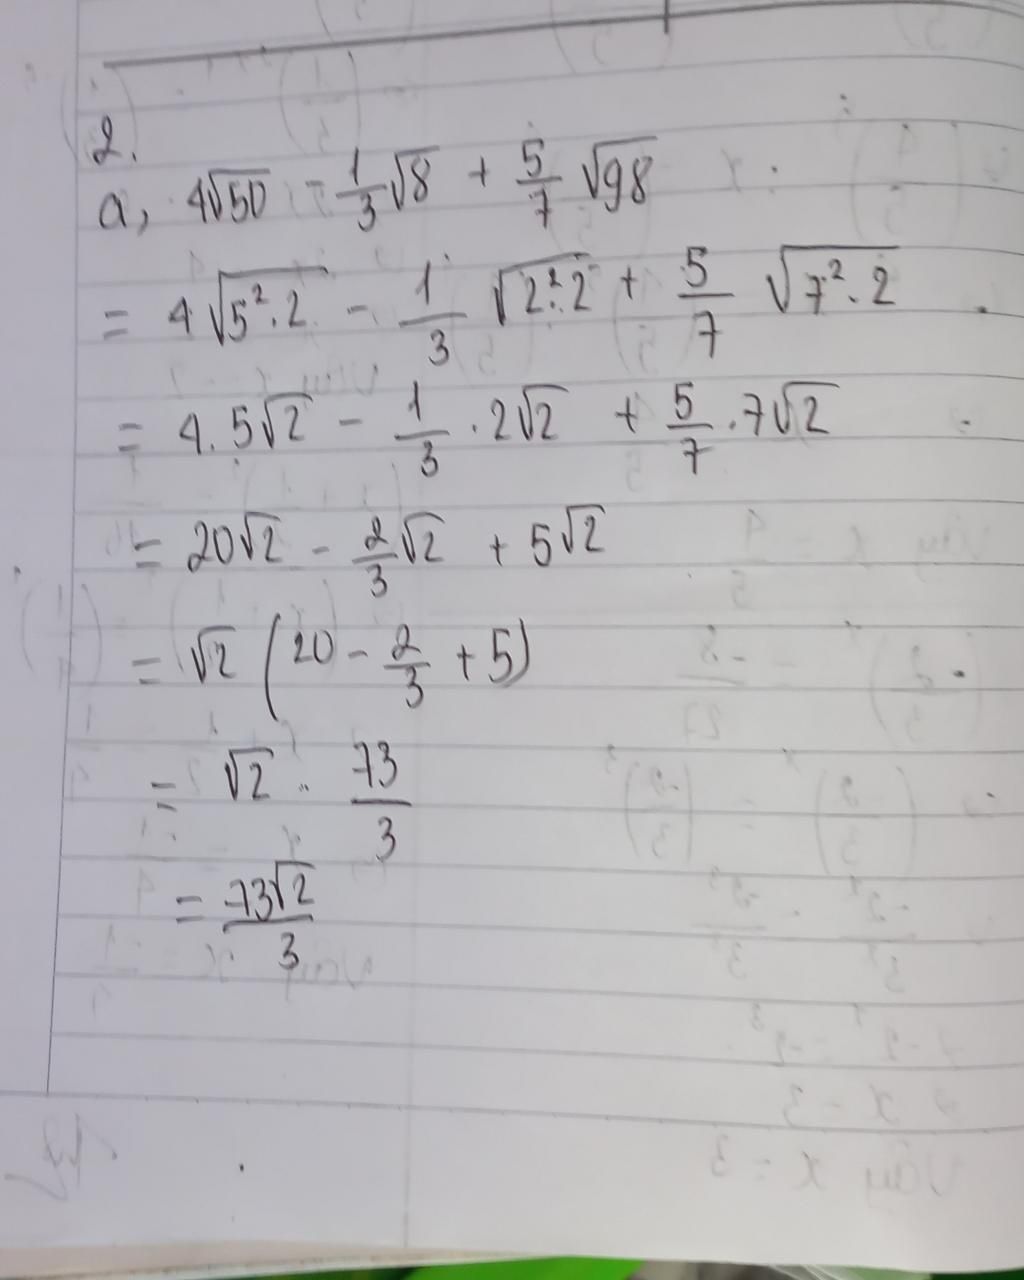 2.
a, 4√50 - 1/3 √8 + 5/7 √98
= 4√(5².2) - 1/3 √(2².2) + 5/7 √(7².2)
= 4.5√2 - 1/3 . 2√2 + 5/7 . 7√2
= 20√2 - 2/3 √2 + 5√2
= √2 (20 - 2/3 + 5)
= √2 . 73/3
= 73√2/3